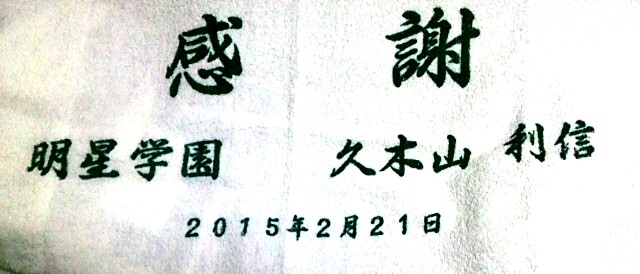 感謝
明星学園 久木山 利信
2015年2月21日